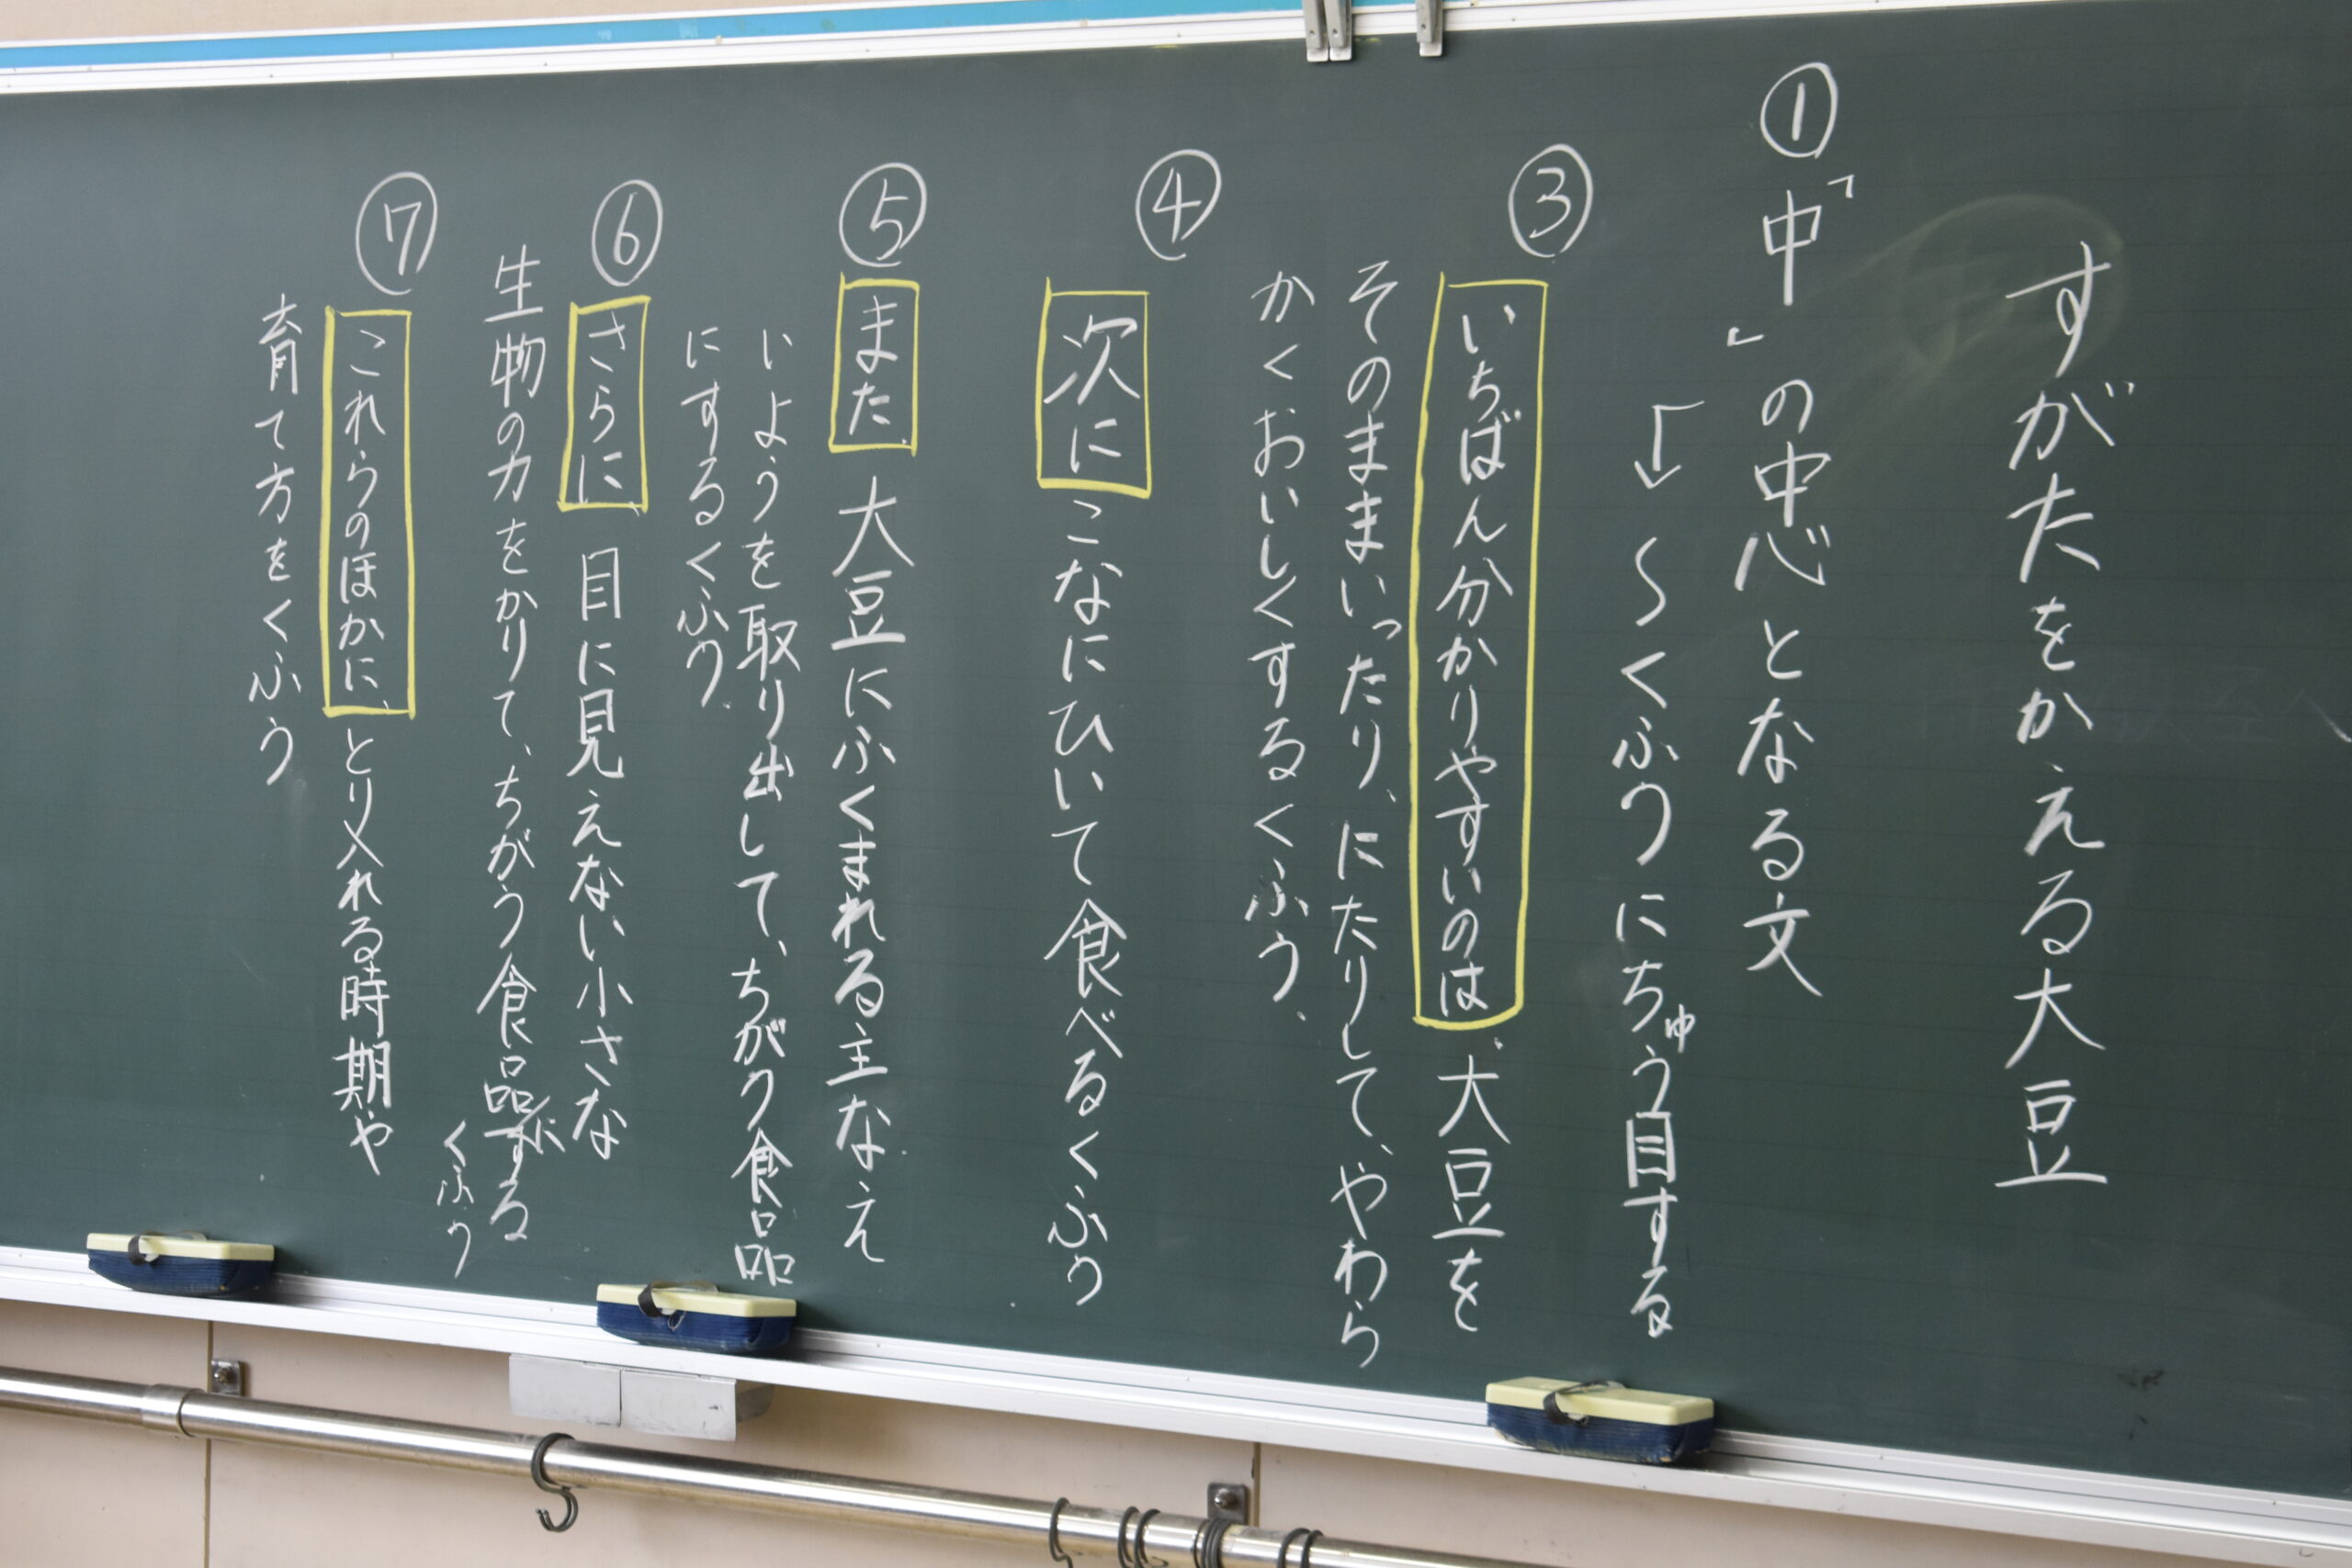 すがたをかえる大豆
①「中」の中心となる文
～くふうにちゅう目する
③いちばん分かりやすいのは、大豆を
そのままいったり、にたりして、やわら
かくおいしくするくふう。
④次にこなにひいて食べるくふう
⑤また大豆にふくまれる主なえ
いようを取り出して、ちがう食品
にするくふう。
⑥さらに、目に見えない小さな
生物の力をかりて、ちがう食品にする
くふう
⑦これらのほかに、とり入れる時期や
育て方をくふう